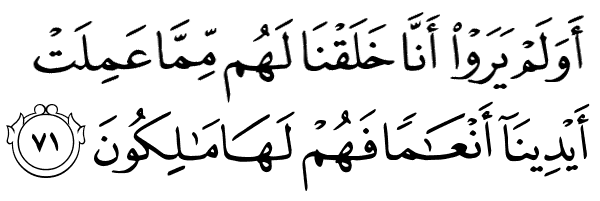 أَوَلَمْ يَرَوْا۟ أَنَّا خَلَقْنَا لَهُم مِّمَّا عَمِلَتْ
أَيْدِينَآ أَنْعَـٰمًا فَهُمْ لَهَا مَـٰلِكُونَ ٧١